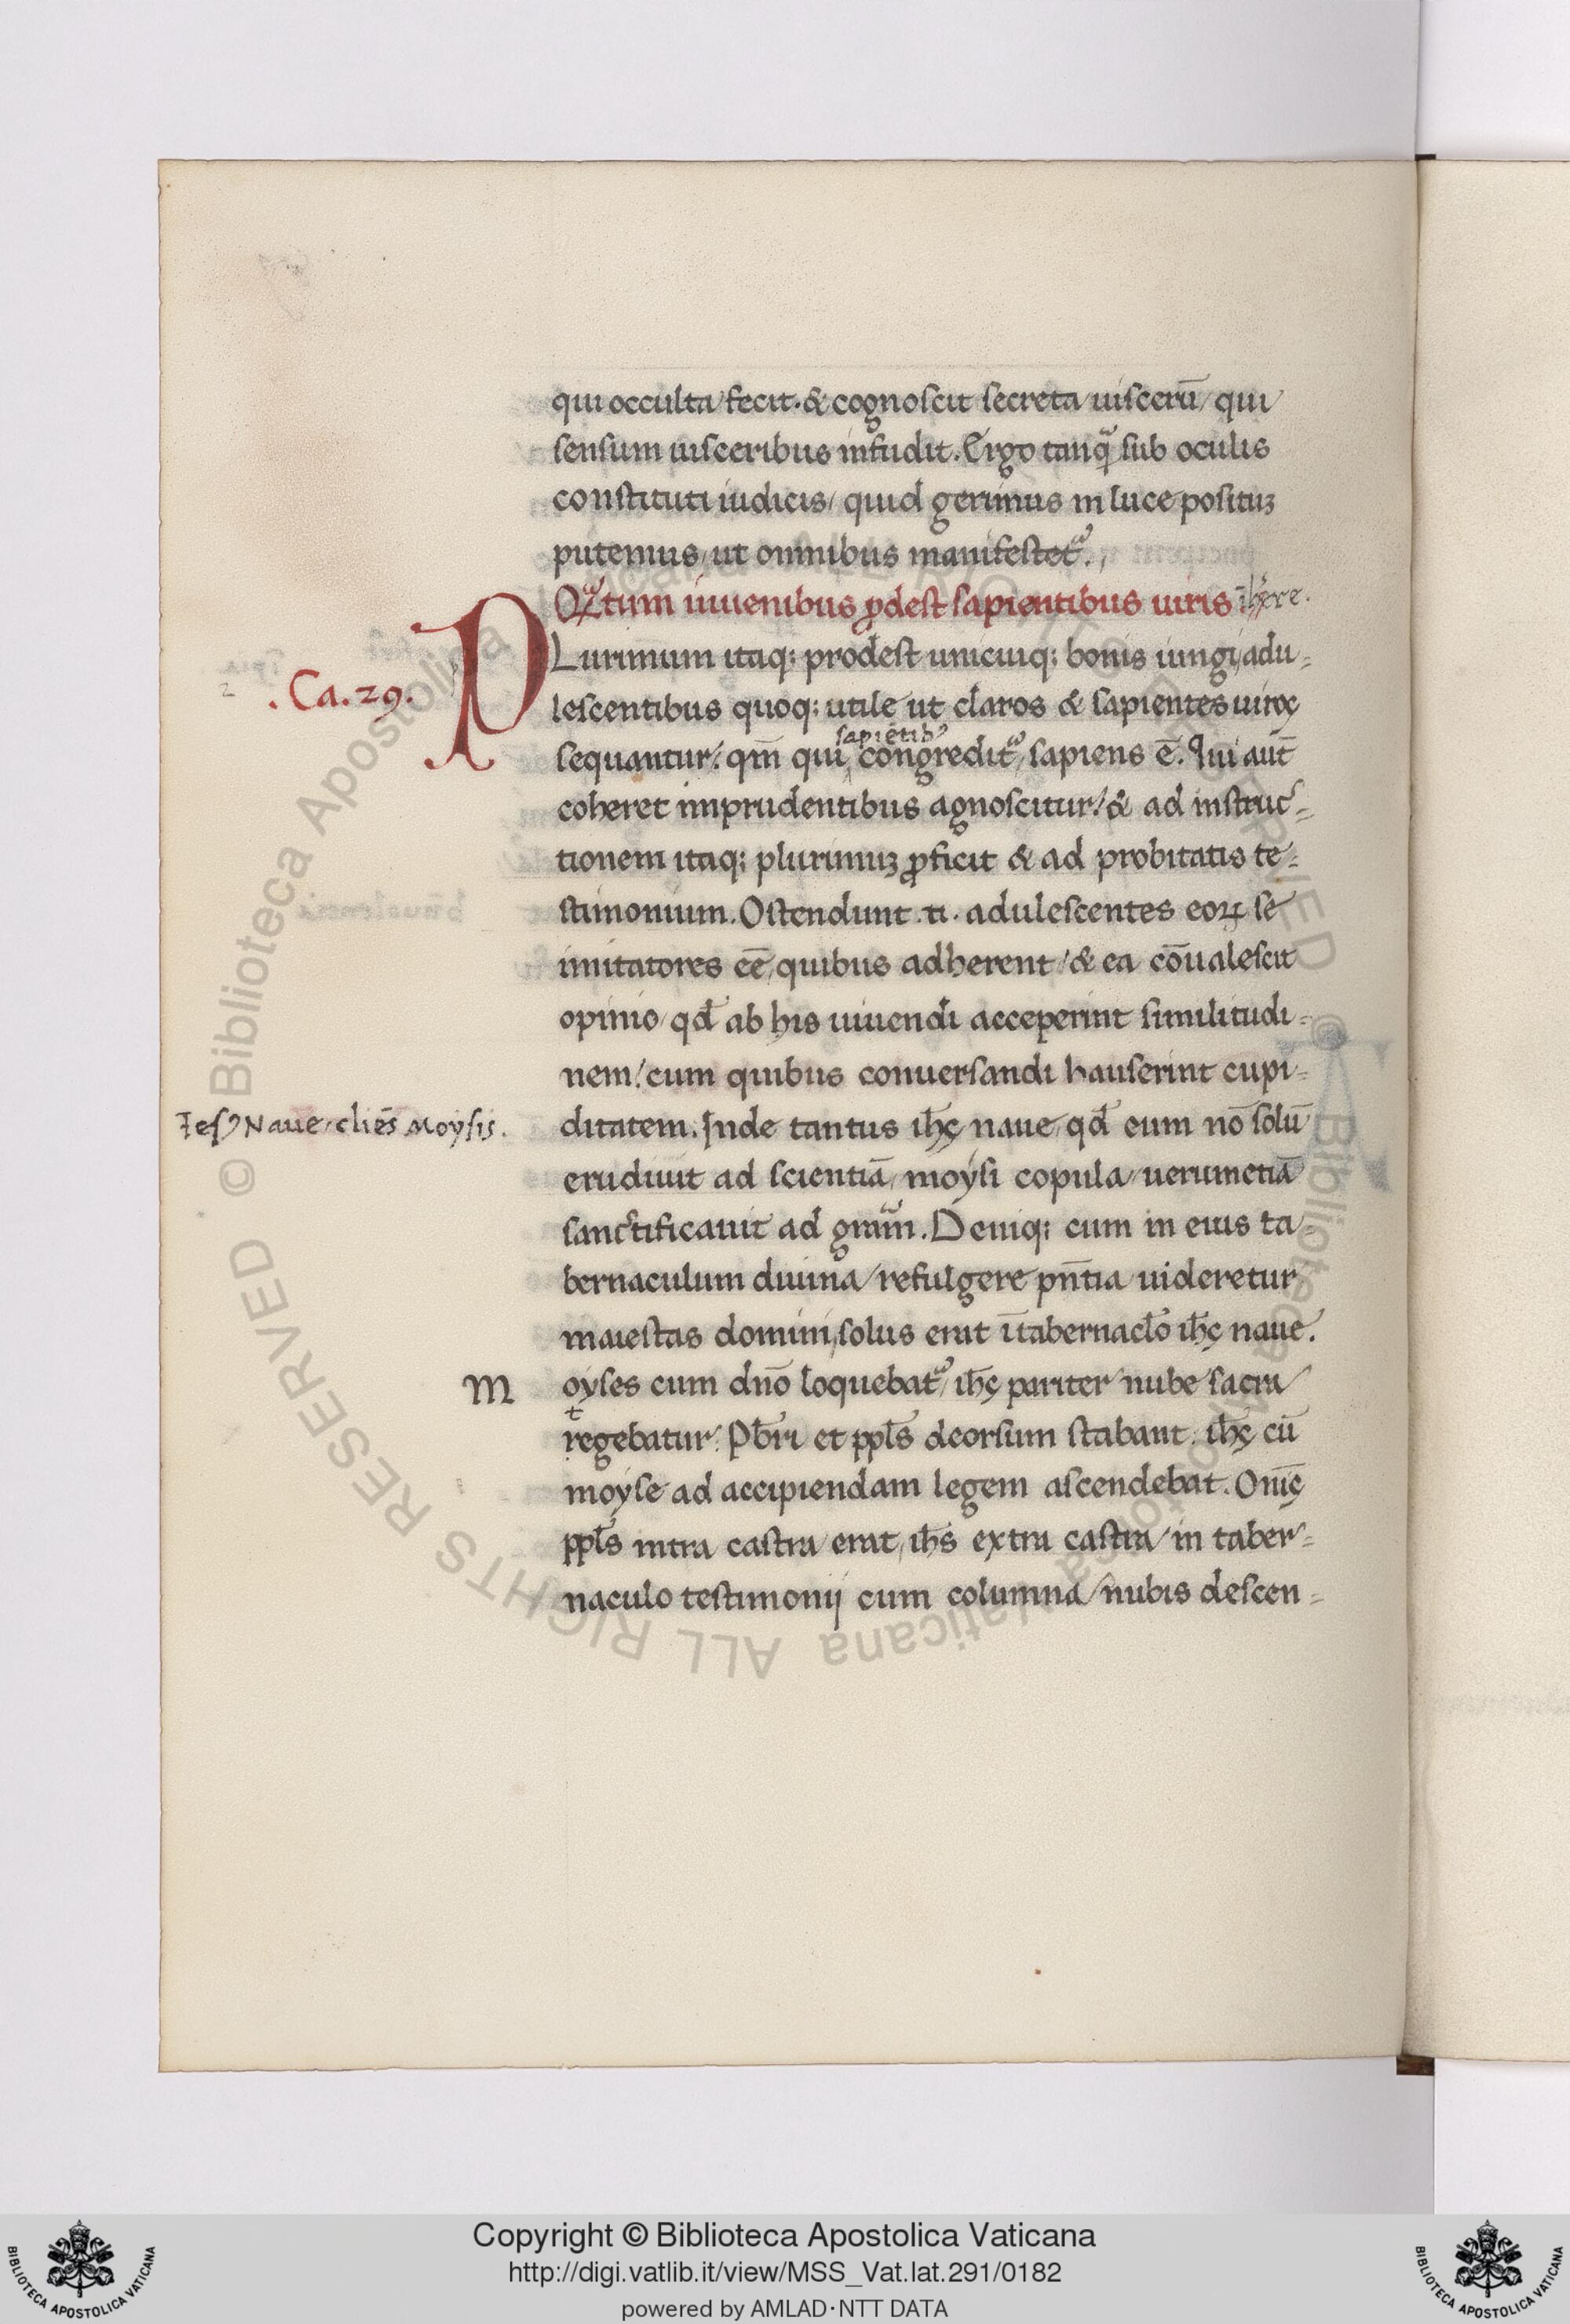 qui occulta fecit. & cognoscit secreta uiscerū/ qui
sensum uisceribus infudit. Ergo tanqͣ sub oculis
constituti iudicis/ quid gerimus in luce posituȝ
putemus/ ut omnibus manifestet᷑.
Qͣtum iuuenibus ꝓdest sapientibus uiris īherere.
. Ca. 29.
PLurimum itaq; prodest unicuiq; bonis iungi/ adu-
lescentibus quoq; utile ut claros & sapientes uiroς
sapiētibꝰ
sequantur/. qm̄ qui congredit᷑/ sapiens ē. Qui aut̄
coheret imprudentibus agnoscitur/. & ad instruc-
tionem itaq; plurimuȝ ꝓficit & ad probitatis te-
stimonium. Ostendunt .n. adulescentes eoꝝ se
imitatores eē/ quibus adherent/ & ea cōualescit
opinio/ qd̄ ab his uiuendi acceperint similitudi-
nem/. cum quibus conuersandi hauserint cupi-
Iesꝰ Naue cliēs Moysis.
ditatem. Inde tantus ih̄ς naue/ qd̄ eum nō solū
erudiuit ad scientiā/ moysi copula/ uerumetiā
sanctificauit ad gram̄. Deniq; cum in eius ta-
bernaculum diuina/ refulgere pn̄tia uideretur
maiestas domini/ solus erat ī tabernacl̄o ih̄ς naue.
Moyses cum dn̄o loquebat᷑/ ih̄ς pariter nube sacra
t
regebatur/. Pb̄ri et ppl̄s deorsum stabant. ih̄ς cū
moyse ad accipiendam legem ascendebat. Om̄iς
ppl̄s intra castra erat, ih̄s extra castra in taber-
naculo testimonij cum columna nubis descen-
© Biblioteca Apostolica Vaticana ALL RIGHTS RESERVED
Copyright © Biblioteca Apostolica Vaticana
http://digi.vatlib.it/view/MSS_Vat.lat.291/0182
powered by AMLAD·NTT DATA
BIBLIOTECA APOSTOLICA VATICANA
BIBLIOTECA APOSTOLICA VATICANA